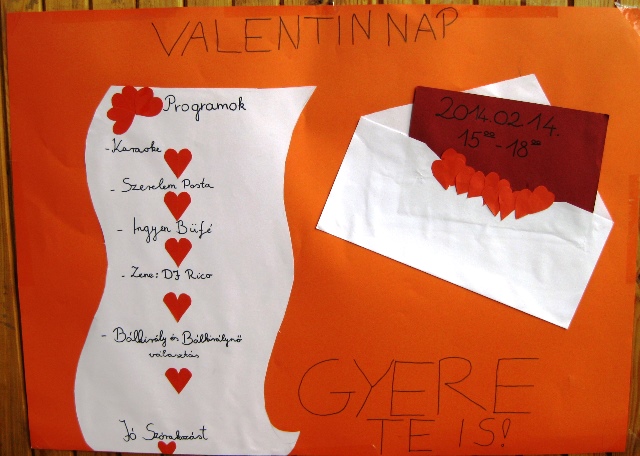 VALENTIN NAP
Programok
- Karaoke
- Szerelem Posta
- Ingyen Büfé
- Zene: DJ Rico
- Bálkirály és Bálkirálynő
választás
Jó Szórakozást
2014.02.14.
15⁰⁰-18⁰⁰
GYERE
TE IS!